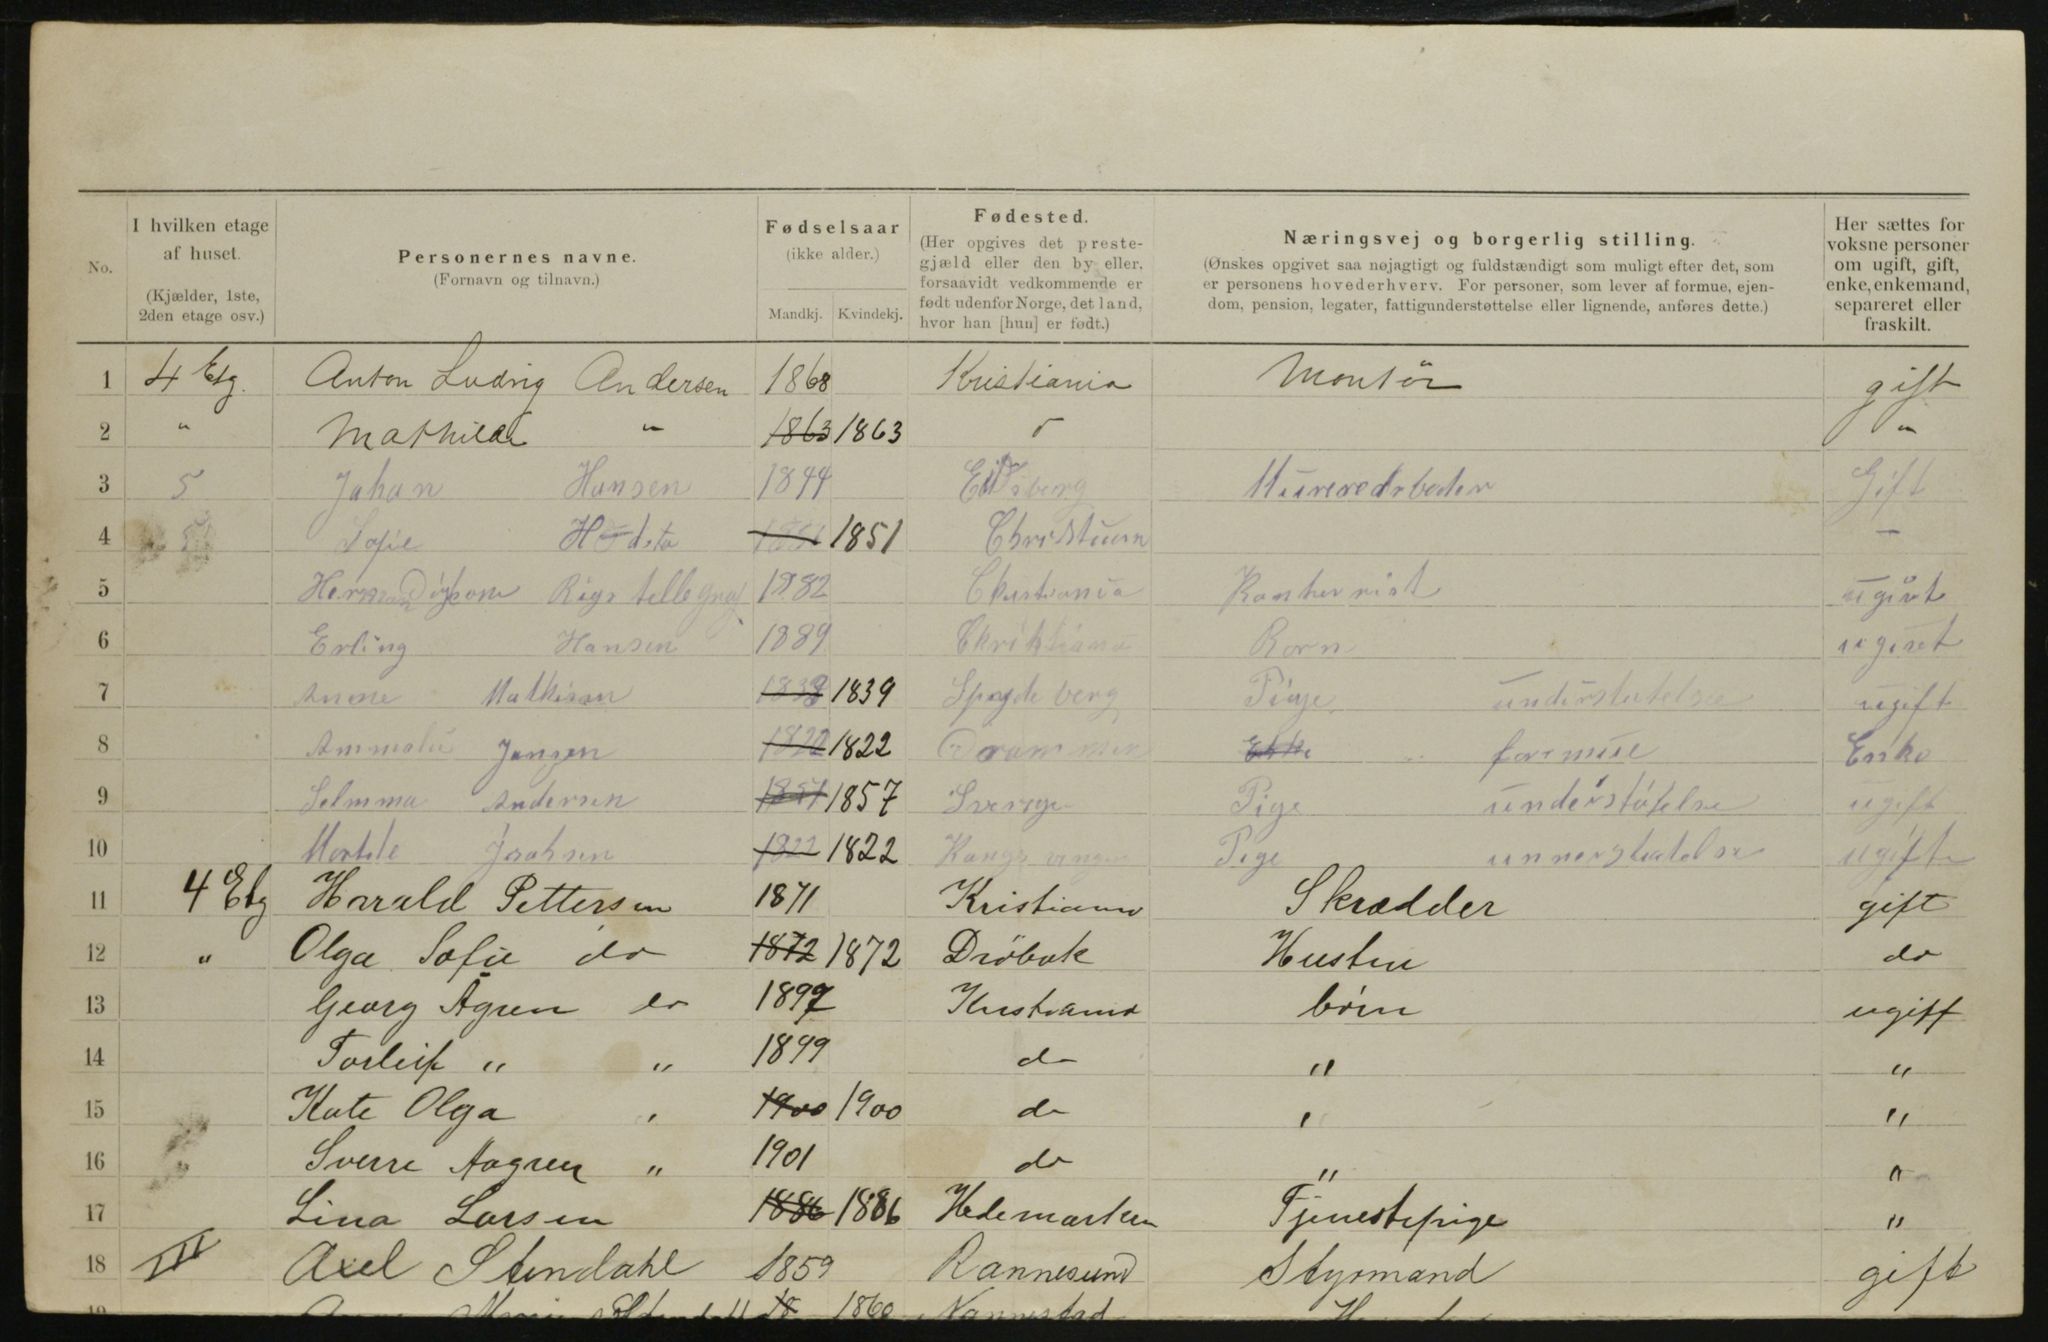 No.
I hvilken etage af huset. (Kjælder, 1ste, 2den etage osv.)
Personernes navne. (Fornavn og tilnavn.)
Fødselsaar (ikke alder.) Mandkj. Kvindekj.
Fødested. (Her opgives det prestegjæld eller den by eller, forsaavidt vedkommende er født udenfor Norge, det land, hvor han [hun] er født.)
Næringsvej og borgerlig stilling. (Ønskes opgivet saa nøjagtigt og fuldstændigt som muligt efter det, som er personens hovederhverv. For personer, som lever af formue, ejendom, pension, legater, fattigunderstøttelse eller lignende, anføres dette.)
Her sættes for voksne personer om ugift, gift, enke, enkemand, separeret eller fraskilt.
1 4 Etg. Anton Ludvig Andersen 1868 Kristiania Montör gift
2 " Mathilde " 1863 1863 "
3 5 Johan Hansen 1844 Gift
4 5 Sofie 1851 —
5 1882 Christiania ugivt
6 Erling Hansen 1889 Barn ugivet
7 Anene Mathisen 1839 Spydeberg Pige ugift
8 Jansen 1822 1822 Drammen formue Enke
9 Selmma Andersen 1857 Sverge Pige understøtelse ugift
10 1822 1822 Pige ugift
11 4 Etg Harald Pettersen 1871 Kristiania Skrædder gift
12 " Olga Sofie do 1872 1872 Dröbak Hustru do
13 Georg Ågren do 1897 Kristiania börn ugift
14 Torleif " " 1899 do " "
15 Kate Olga " 1900 1900 do " "
16 Sverre Aagren " 1901 do " "
17 Lina Larsen 1886 1886 Hedemarken Tjenestepige "
18 III Axel Stendahl 1859 Styrmand gift
19 Marie 18 1860 Nannestad